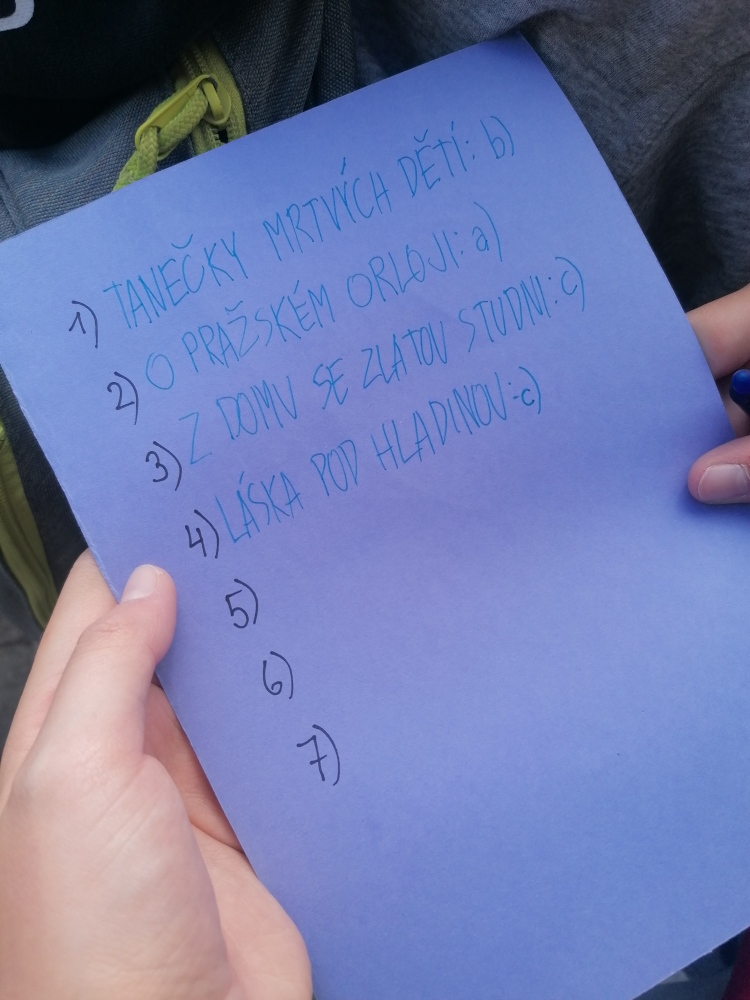 1) TANEČKY MRTVÝCH DĚTÍ: b)
2) O PRAŽSKÉM ORLOJI: a)
3) Z DOMU SE ZLATOU STUDNI: c)
4) LÁSKA POD HLADINOU: c)
5)
6)
7)